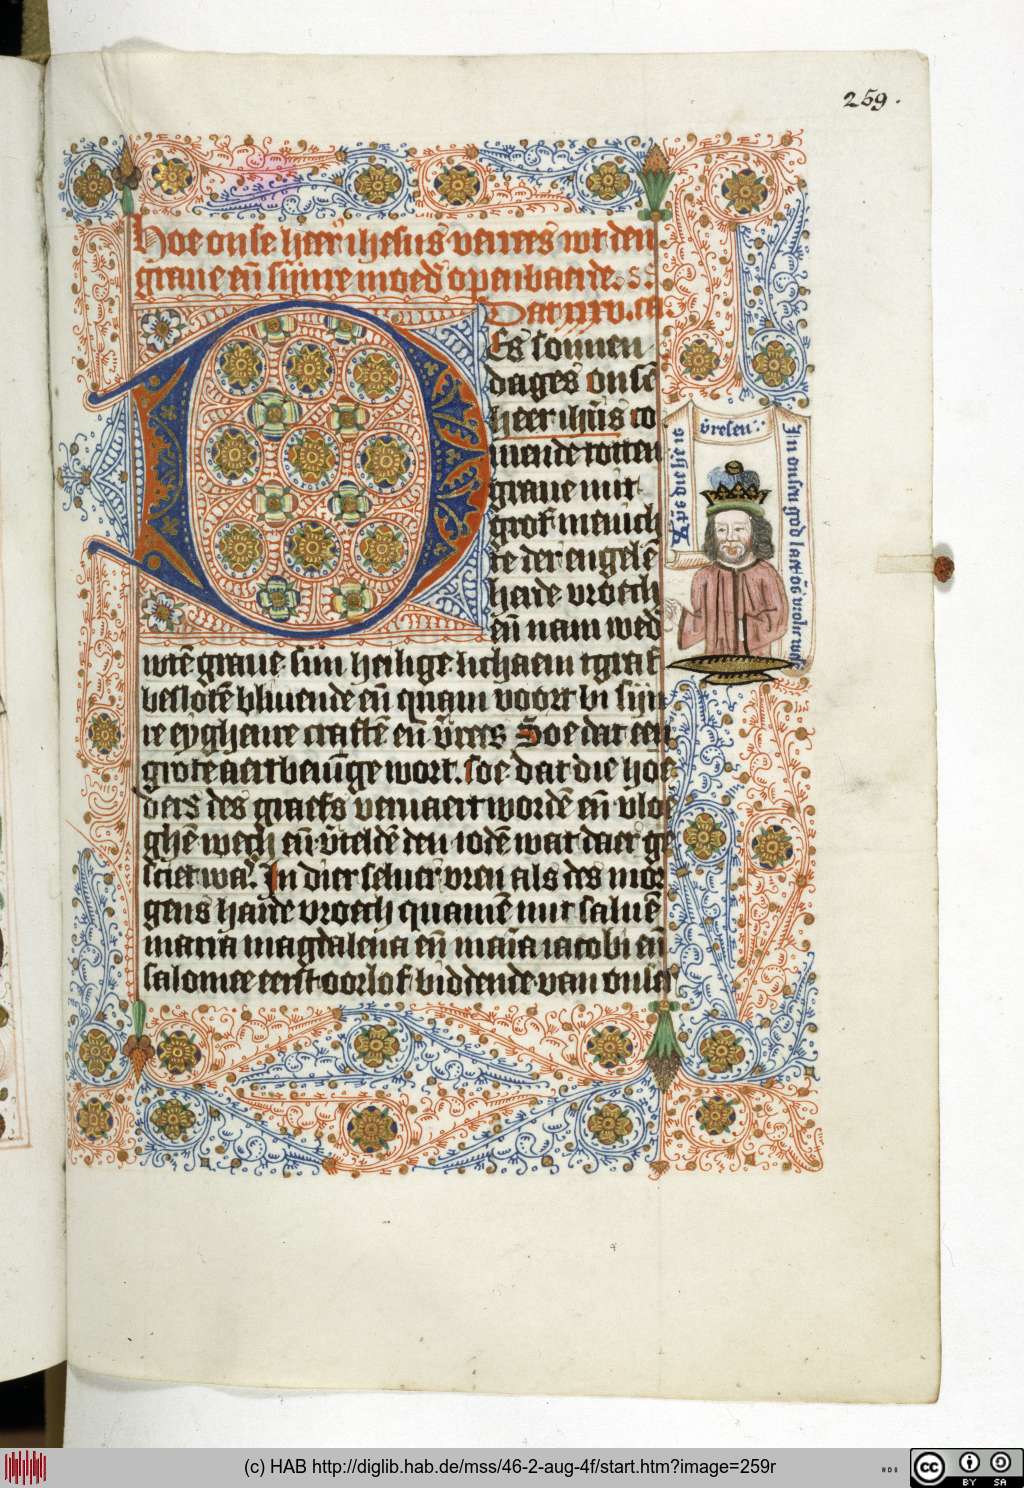 259.
Hoe onse heer ihesus verrees wt den
graue en̄ sijnre moed' openbaerde.
Dat xxxv. ca
Des sonnen
dages onse
heer ihūs co
mende totten
graue mit
grot' menich
te der engelē
harde vroech
en̄ nam wed'
wtē graue sijn heilige lichaem tgraf
beslotē bliuende en̄ quam voort bi sijn
re eyghenre craftē en̄ v̄rees Soe dat een
grote aertbeuīge wort. soe dat die hoe
ders des graefs veruaert wordē en̄ vloe
ghē wech en̄ v̄teldē den iodē wat daer ge
sciet was. In dier seluer vren als des mor
gens harde vroech quamē mit saluē
maria magdalena en̄ maīa iacobi en̄
salomee eerst oorlof biddende van onser
Xp̄s die here is
v̄resen
In onsen god laet ōs
(c) HAB http://diglib.hab.de/mss/46-2-aug-4f/start.htm?image=259r
cc
BY SA